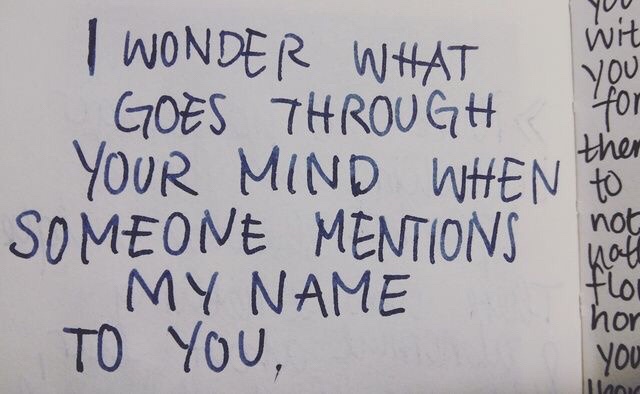 I WONDER WHAT
GOES THROUGH
YOUR MIND WHEN
SOMEONE MENTIONS
MY NAME
TO YOU.
you
wit
you
for
then
to
not
flo
hor
you